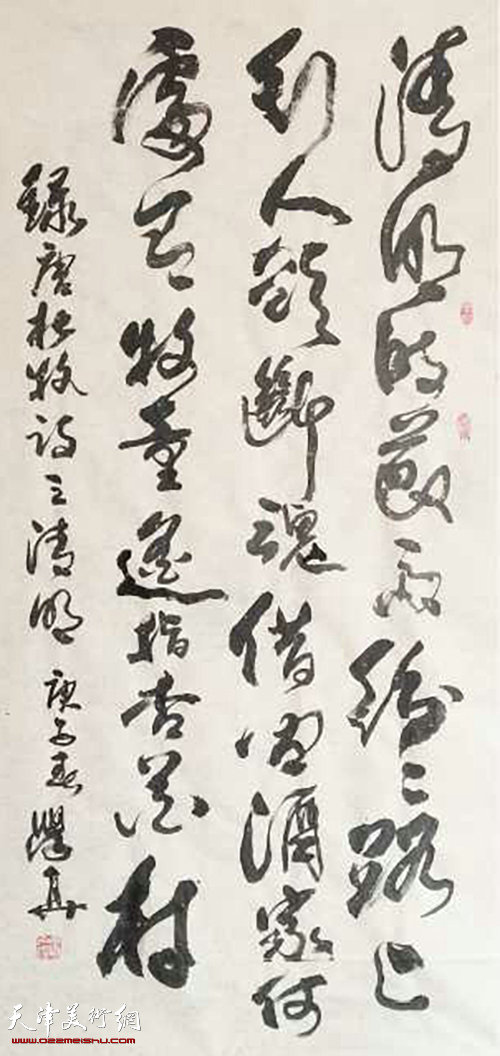 清明時節雨紛々路上
行人欲斷魂借問酒家何
處有牧童遙指杏花村
錄唐杜牧詩之清明 庚子春
天津美術網
www.022meishu.com